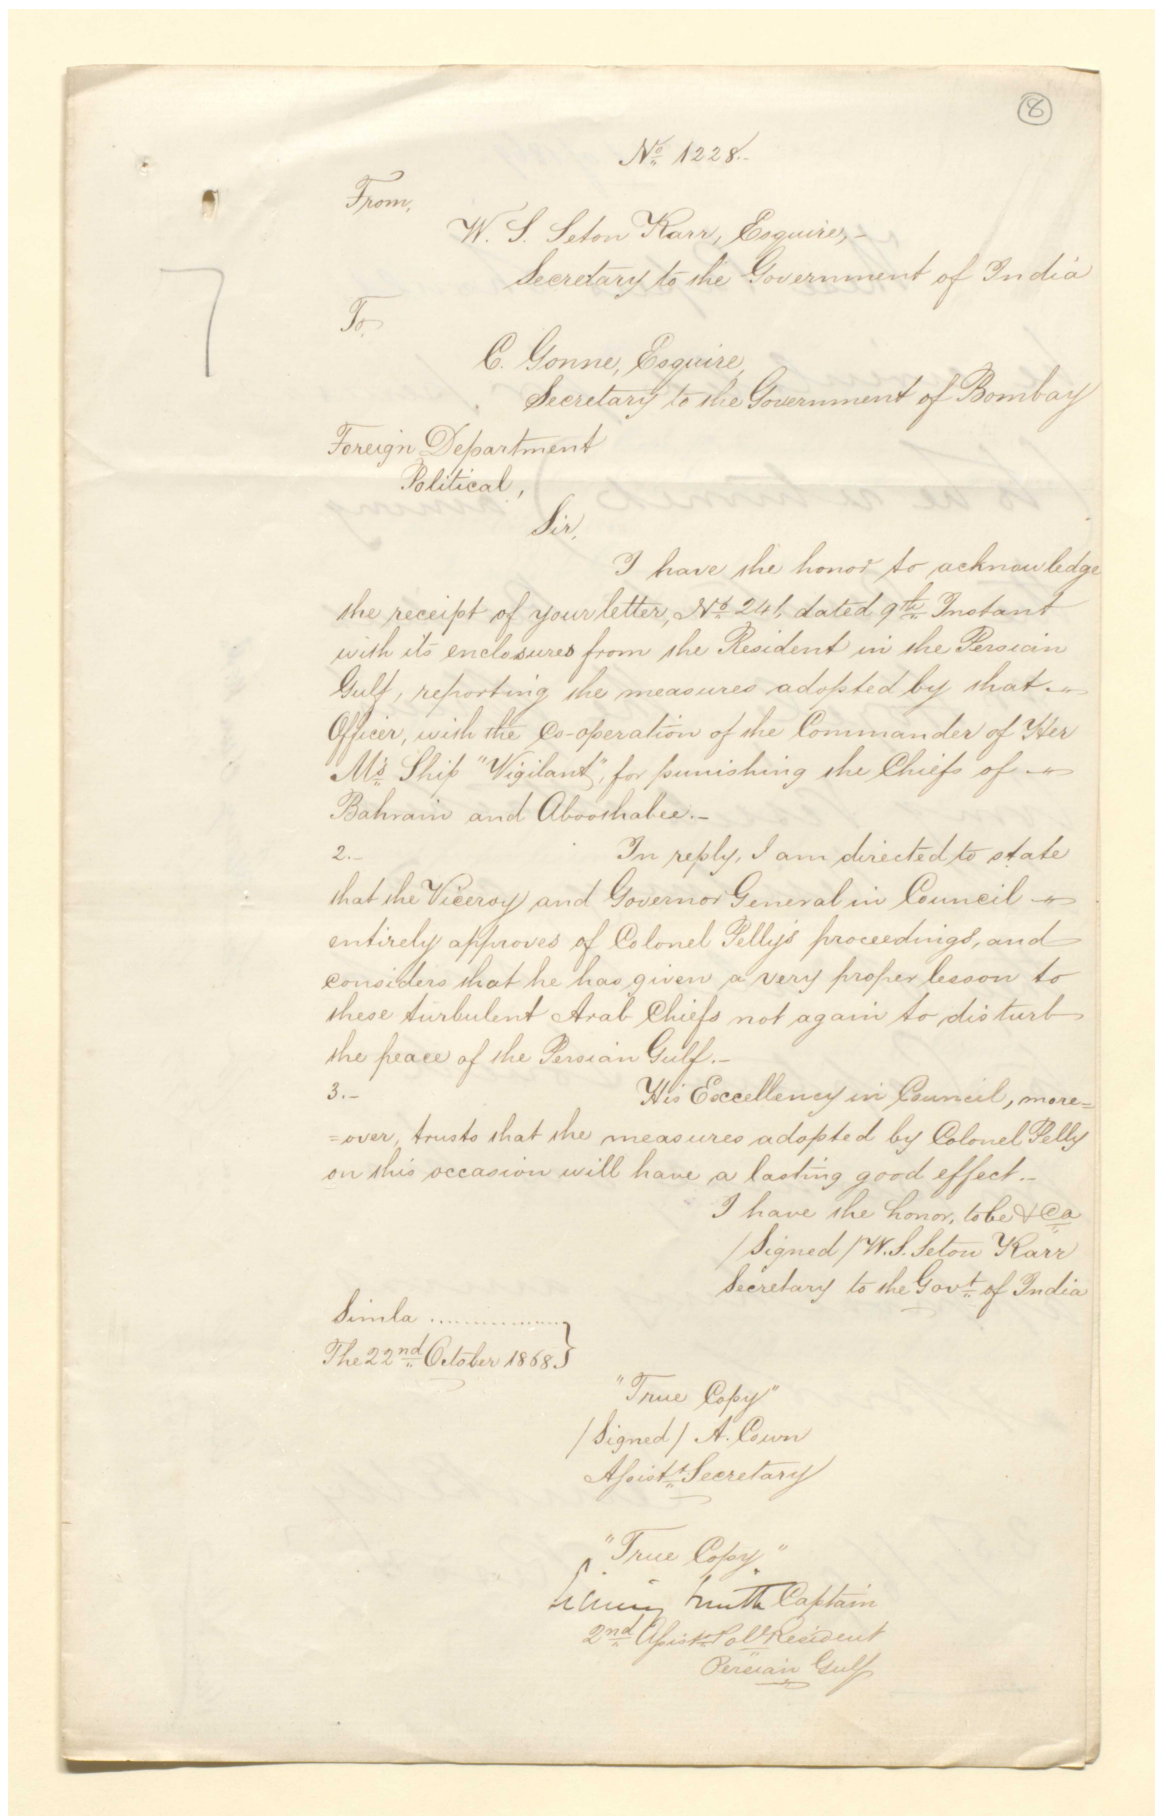 8
No 1228.
From,
W. S. Seton Karr, Esquire,
Secretary to the Government of India
To,
C. Gonne, Esquire,
Secretary to the Government of Bombay
Foreign Department
Political,
Sir,
I have the honor to acknowledge
the receipt of your letter, No 241, dated 9th Instant
with its enclosures from the Resident in the Persian
Gulf, reporting the measures adopted by that
Officer, with the Co-operation of the Commander of Her
M's Ship "Vigilant", for punishing the Chiefs of
Bahrain and Abooshabee.-
2.- In reply, I am directed to state
that the Viceroy and Governor General in Council
entirely approves of Colonel Pelly's proceedings, and
considers that he has given a very proper lesson to
these turbulent Arab Chiefs not again to disturb
the peace of the Persian Gulf.-
3.- His Excellency in Council, more=
=over, trusts that the measures adopted by Colonel Pelly
on this occasion will have a lasting good effect.-
I have the honor, to be &ca
/Signed/ W. S. Seton Karr
Secretary to the Govt of India
Simla ................}
The 22nd October 1868}
"True Copy"
/Signed/ A. Cown
Assistt Secretary
"True Copy"
Smith Captain
2nd Assistt Poll Resident
Persian Gulf